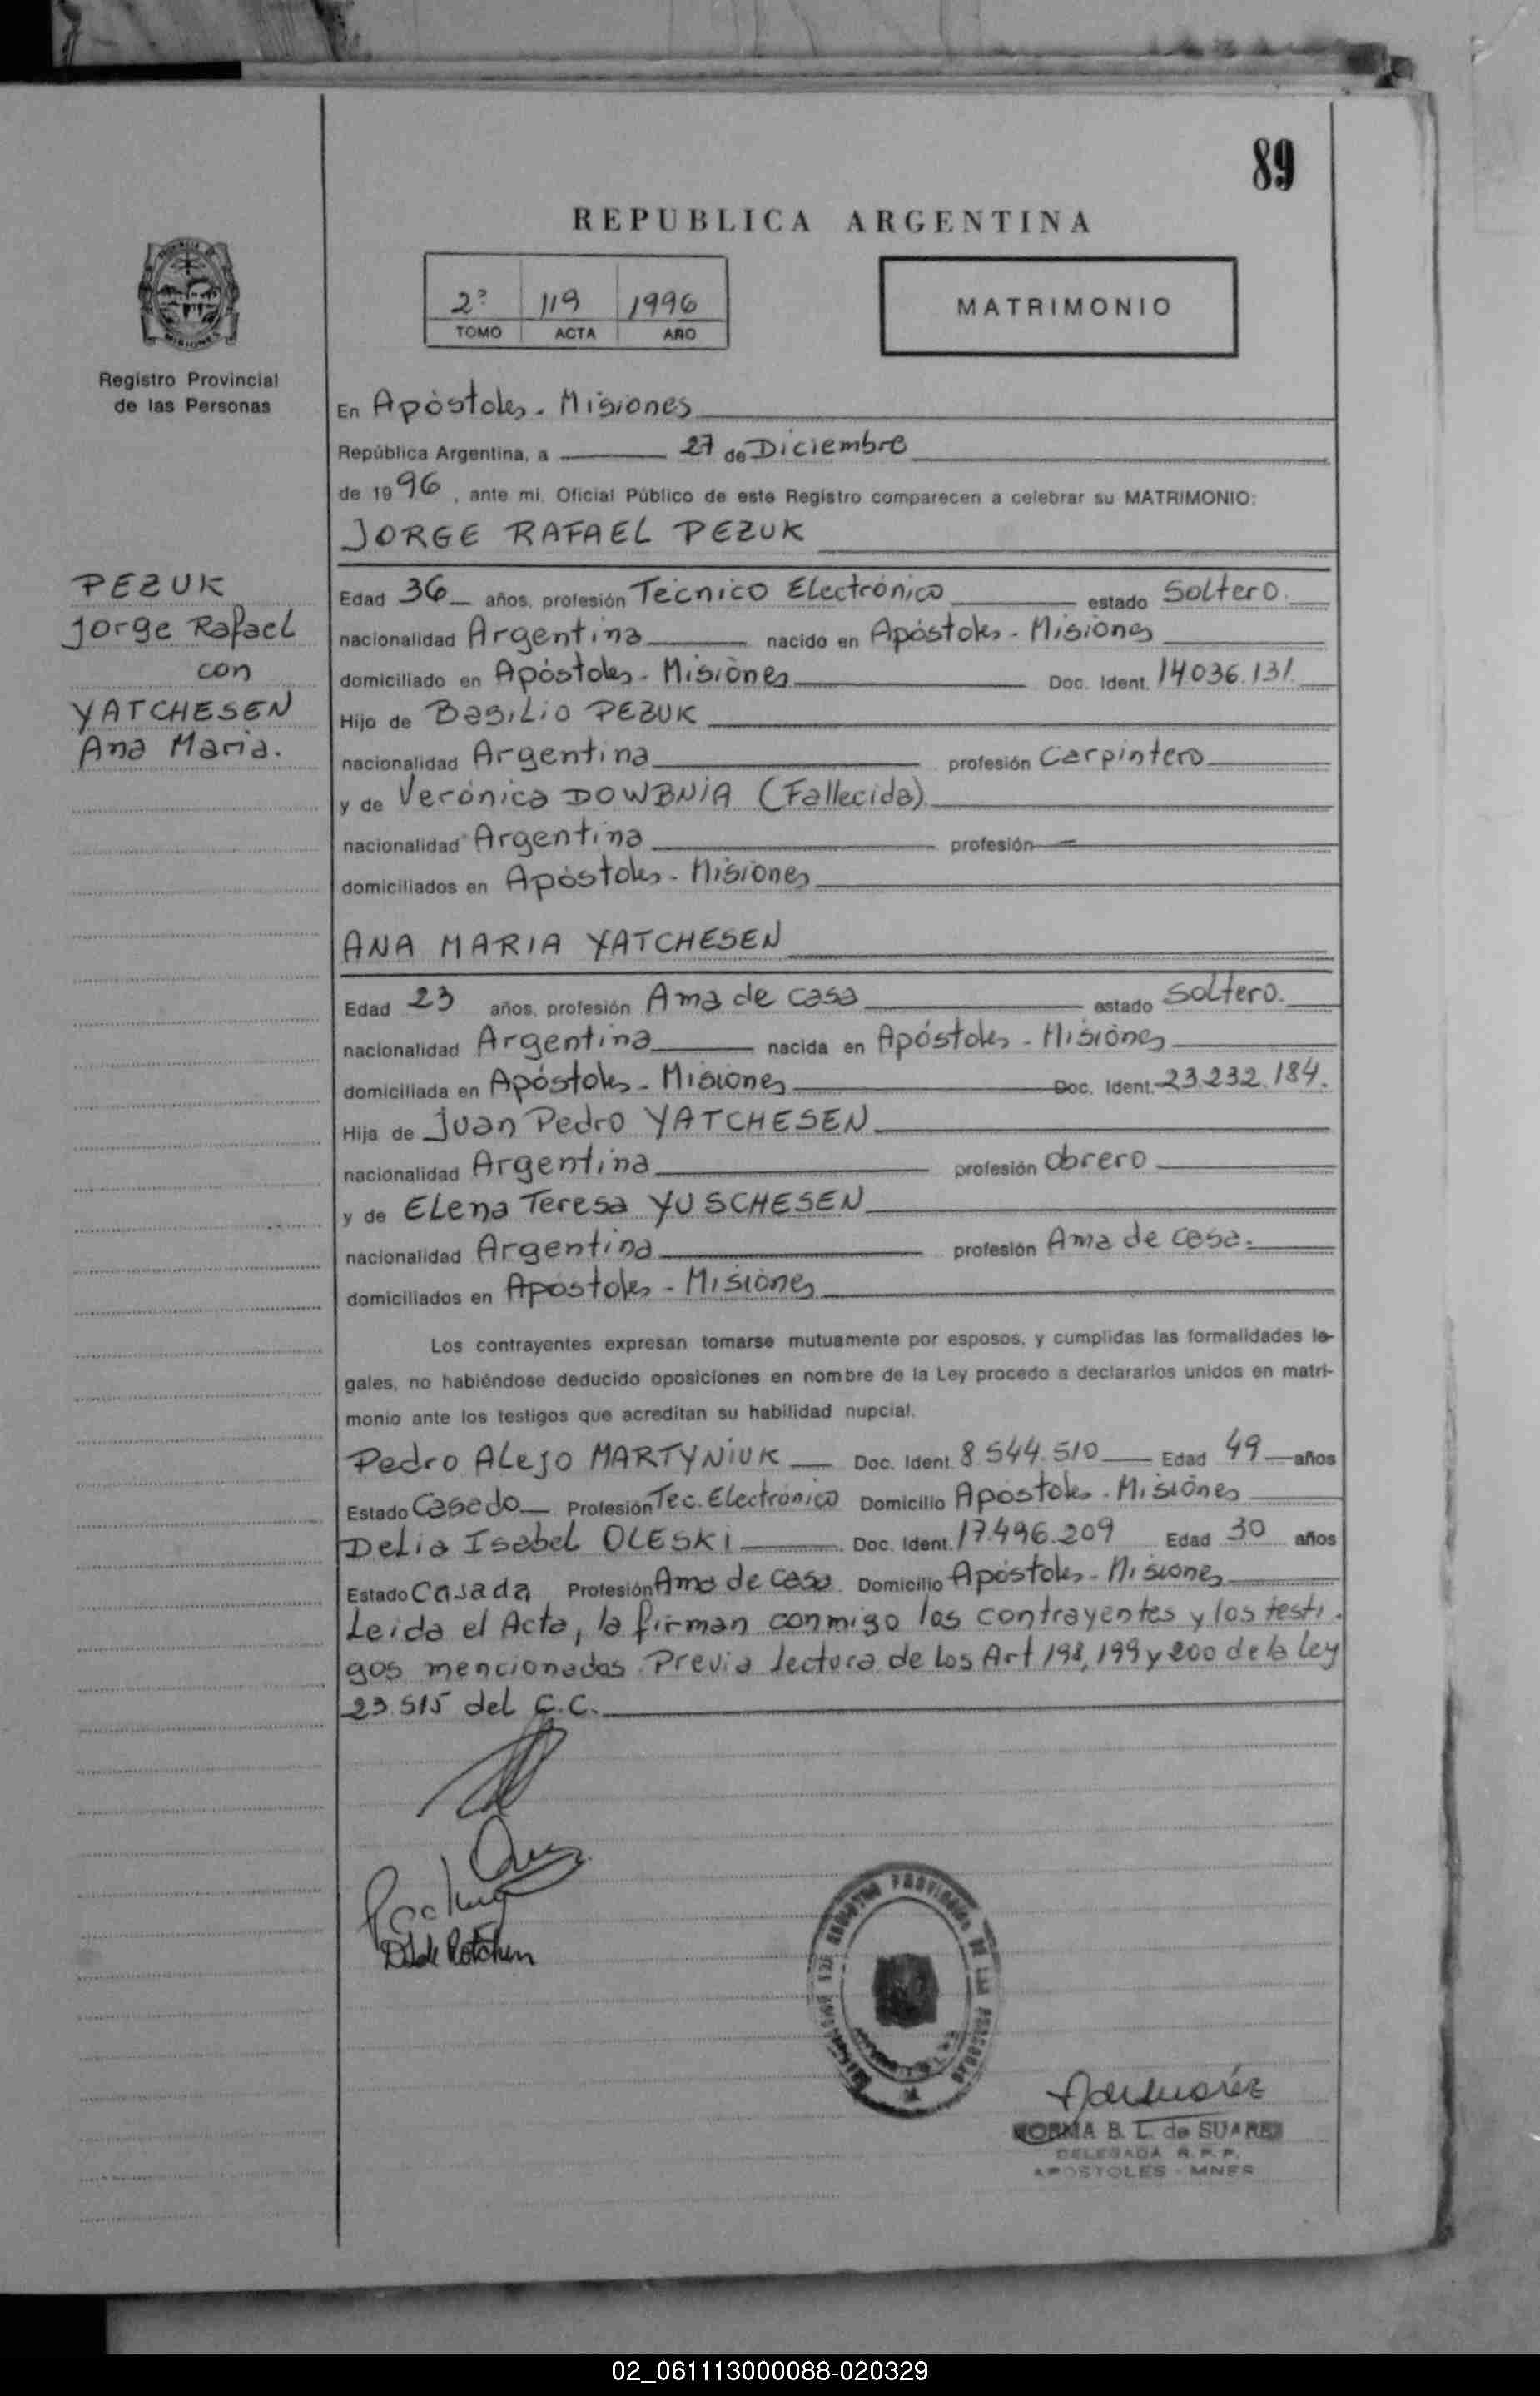 89
REPUBLICA ARGENTINA
2º 119 1996
TOMO ACTA AÑO
MATRIMONIO
Registro Provincial
de las Personas
En Apóstoles - Misiones
República Argentina, a 27 de Diciembre
de 1996, ante mí, Oficial Público de este Registro comparecen a celebrar su MATRIMONIO:
JORGE RAFAEL PEZUK
PEZUK
Jorge Rafael
con
YATCHESEN
Ana Maria.
Edad 36 años, profesión Técnico Electrónico estado Soltero.
nacionalidad Argentina nacido en Apóstoles - Misiones
domiciliado en Apóstoles - Misiones Doc. Ident. 14.036.131.
Hijo de Basilio PEZUK
nacionalidad Argentina profesión Carpintero
y de Verónica DOWBNIA (Fallecida)
nacionalidad Argentina profesión —
domiciliados en Apóstoles - Misiones
ANA MARIA YATCHESEN
Edad 23 años, profesión Ama de casa estado Soltero.
nacionalidad Argentina nacida en Apóstoles - Misiones
domiciliada en Apóstoles - Misiones Doc. Ident. 23.232.184.
Hija de Juan Pedro YATCHESEN
nacionalidad Argentina profesión Obrero
y de Elena Teresa YUSCHESEN
nacionalidad Argentina profesión Ama de casa.
domiciliados en Apóstoles - Misiones
Los contrayentes expresan tomarse mutuamente por esposos, y cumplidas las formalidades le-
gales, no habiéndose deducido oposiciones en nombre de la Ley procedo a declararlos unidos en matri-
monio ante los testigos que acreditan su habilidad nupcial.
Pedro Alejo MARTYNIUK Doc. Ident. 8.544.510 Edad 49 años
Estado Casado Profesión Tec. Electrónico Domicilio Apóstoles - Misiones
Delia Isabel OLESKI Doc. Ident. 17.496.209 Edad 30 años
Estado Casada Profesión Ama de casa Domicilio Apóstoles - Misiones
Leida el Acta, la firman conmigo los contrayentes y los testi-
gos mencionados. Previa lectura de los Art 198, 199 y 200 de la Ley
23.515 del C.C.
NORMA B. L. de SUAREZ
DELEGADA R. P. P.
APOSTOLES - MNES
02_061113000088-020329